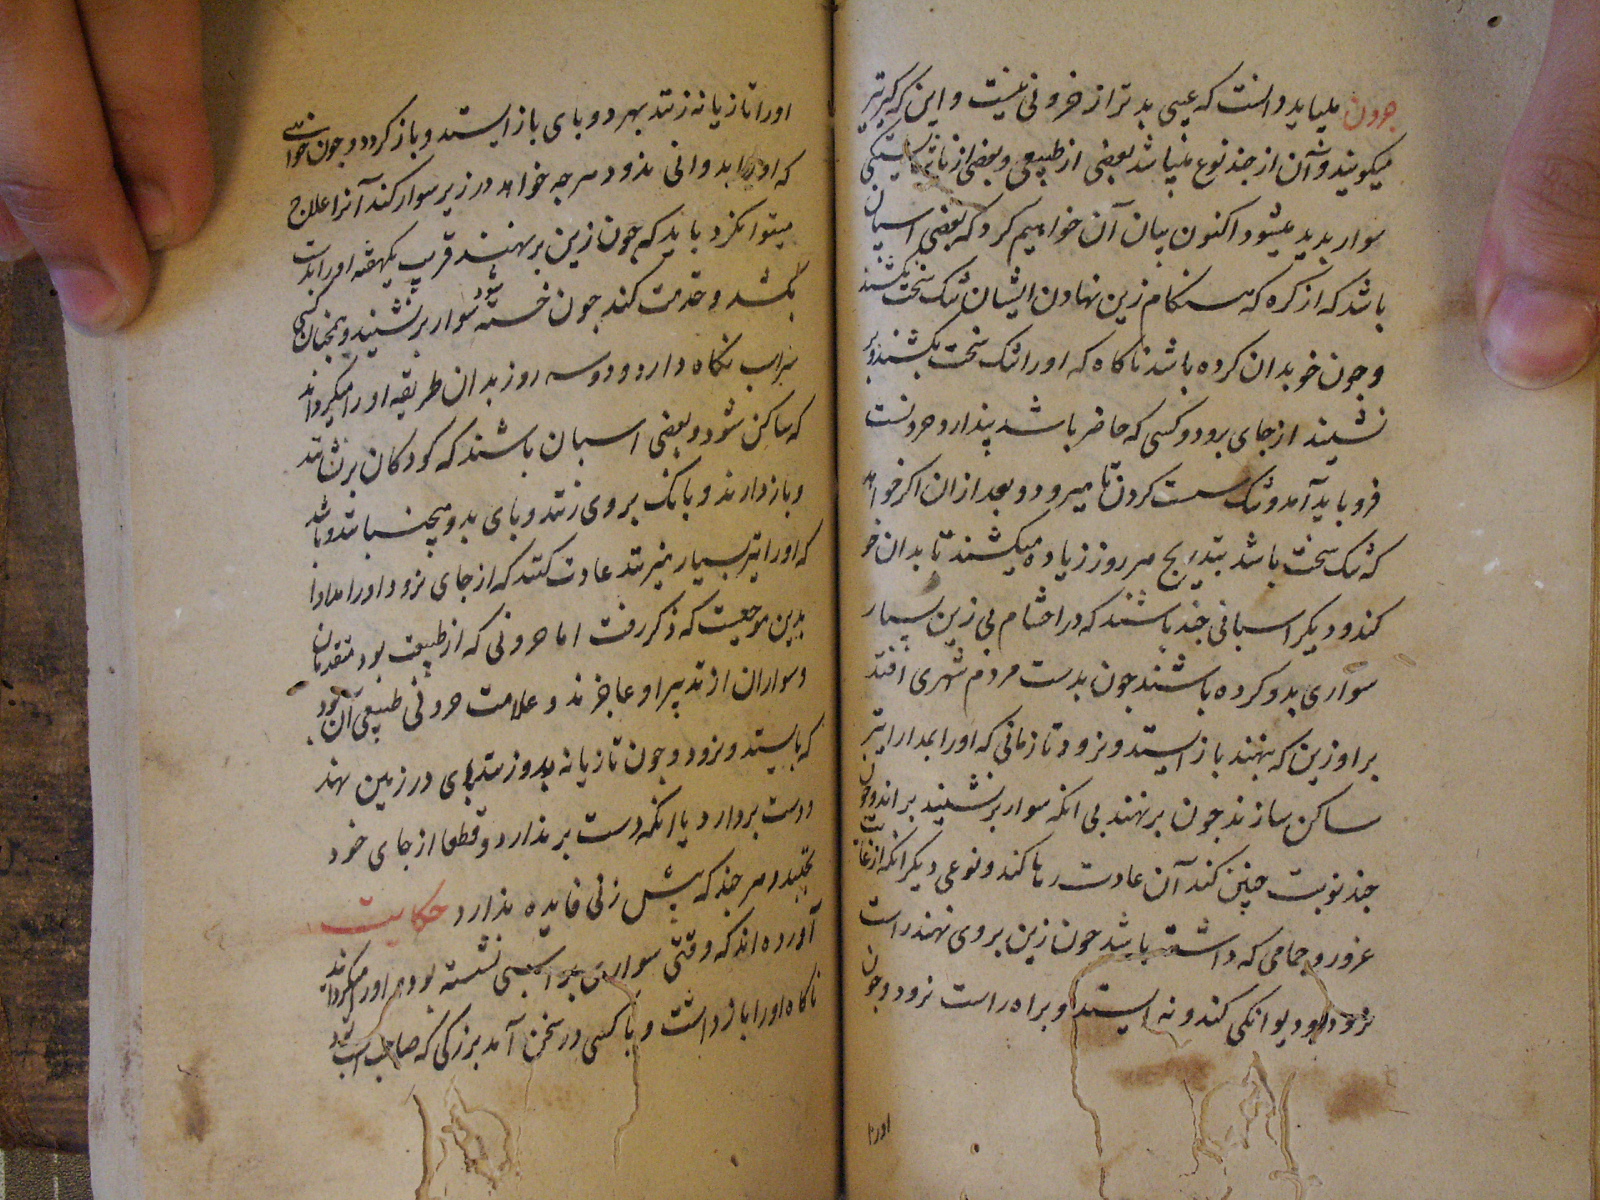 حرون بباید دانست که عیبی بدتر از حرونی نیست و این که کیرتر
میکویند و آن از چند نوع میباشد بعضی از طبیعی و بعضی از
سوار بدید میشود اکنون بیان آن خواهیم کرد که بعضی اسپان
باشد که از کره که هنکام زین نهادن ایشان تنک سخت بکشند
و چون خو بدان کرده باشد ناکاه که او را تنک سخت بکشند و بر
نشیند از جای نرود و کسی که حاضر باشد پندارد حرونست
فرو باید آمد و تنک سست کردن تا میرود و بعد از ان اکر خواهد
که تنک سخت باشد بتدریج هر روز زیاده میکشند تا بدان خو
کند و دیکر اسپانی چند باشند که در احشام بی زین بسیار
سواری بدو کرده باشند چون بدست مردم شهری افتد
بر او زین که بنهند باز ایستد و نرود تا زمانی که او را بمدارا بتر
ساکن سازند چون بر نهند بی انکه سوار بر نشیند براند و چون
چند نوبت چنین کند آن عادت رها کند و نوعی دیکر انکه از غایت
غرور و حامی که داشته باشد چون زین بر وی نهند راست
نرود و دیوانکی کند و نه ایستد و براه راست نرود و چون
اورا
اورا تازیانه زنند بهر دو پای باز ایستد و باز کردد و چون خواهی
که او را بدوانی ندود هرچه خواهد در زیر سوار کند آنرا علاج
میتوان کرد باید که چون زین بر نهند قریب یکهفته او را بدست
بکشد و خدمت کند چون خسته شود سوار بر نشیند و همچنان کسی
نکاه دارد و دو سه روز بدان طریقه او را میکرداند
که ساکن شود و بعضی اسپان باشند که کودکان بر نشانند
و باز دارند و بانک بر وی زنند و پای بدو باشد
که او را تیر بسیار نمیرنند عادت کنند که از جای نرود او را مداوا
بدین موجبست که ذکر رفت اما حرونی که از طبیعت بود متقدمان
و سواران از تدبیر او عاجزند و علامت حرونی طبیعی آن بود
که بایستد و نرود و چون تازیانه بدو زنند پای در زمین نهند
و دست بردارد یا انکه دست بر ندارد و قطعا از جای خود
نجنبد و هر چند که بیش زنی فایده ندارد حکایت
آورده اند که وقتی سواری بر اسبی نشسته بود و او را میکرداند
ناکاه او را باز داشت و با کسی در سخن آمد بزرکی که صاحب اسب بود